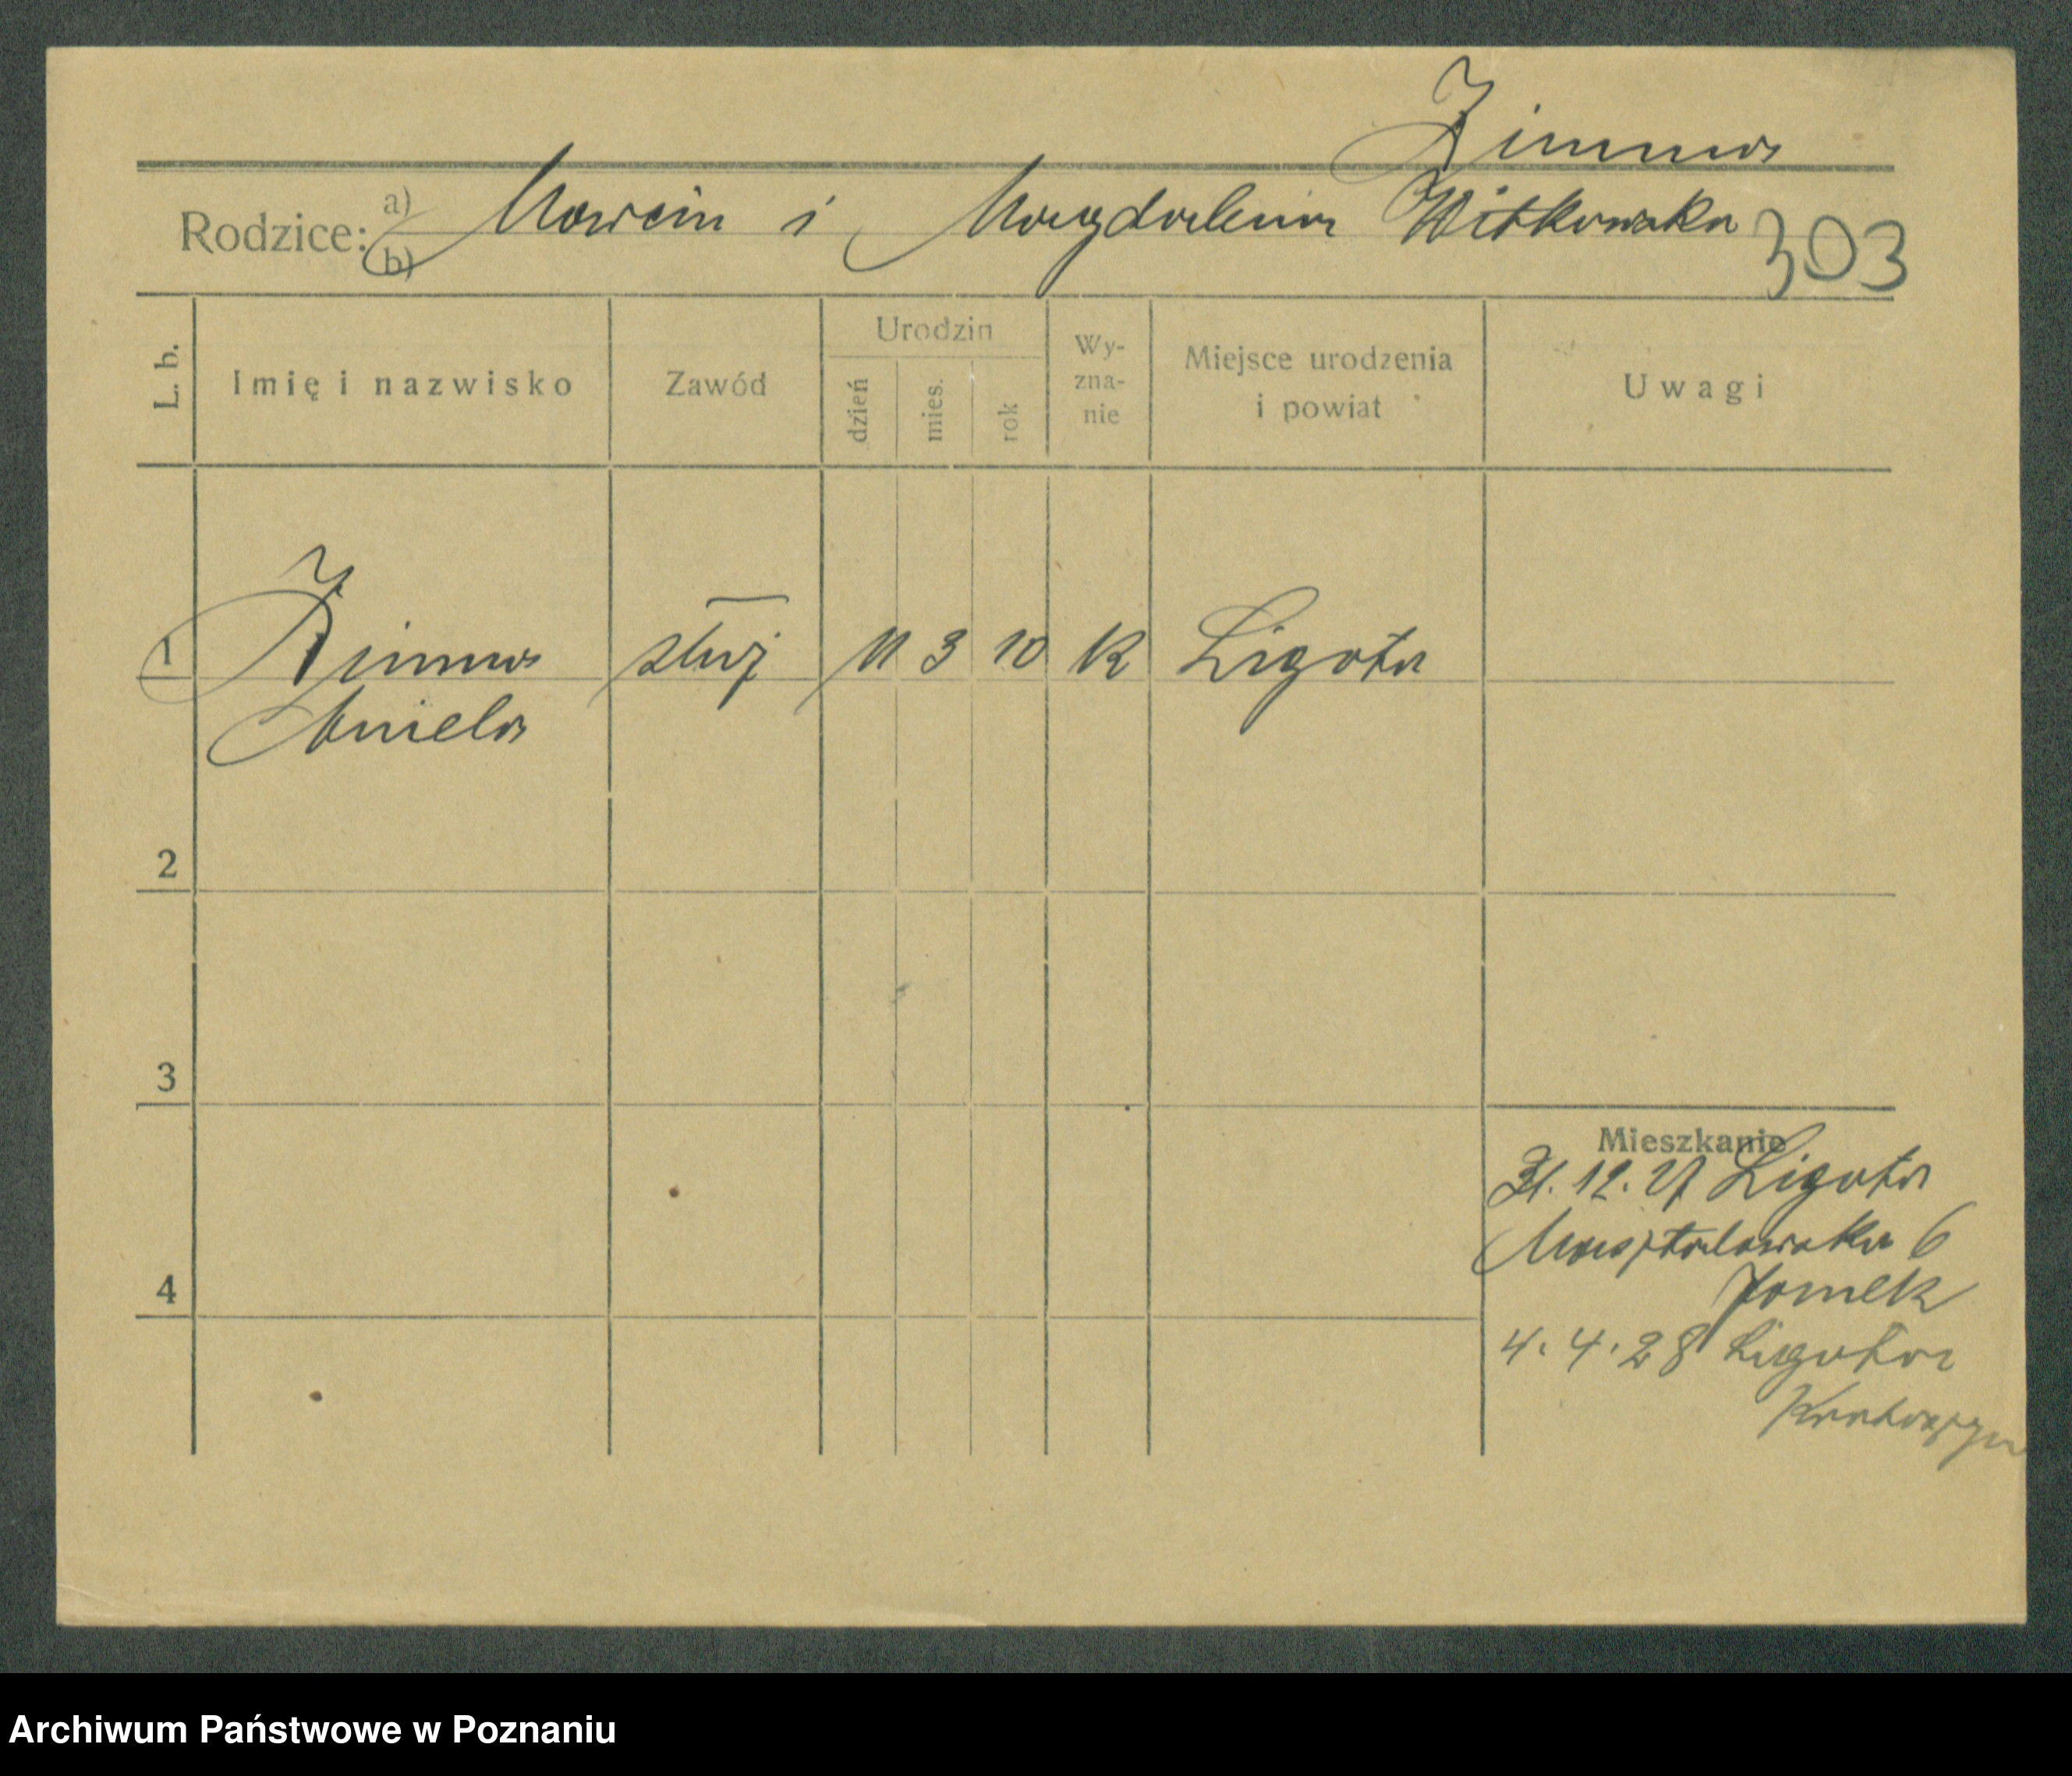 Zimna
Rodzice: a) b) Marcin i Magdalena Witkowska
303
L. b. Imię i nazwisko Zawód Urodzin dzień mies. rok Wy-zna-nie Miejsce urodzenia i powiat Uwagi
1 Zimna służ 11 3 10 K Ligota
Aniela
2
3
4
Mieszkanie
31.12.27 Ligota
Masztalarska 6
Tomek
4.4.28 Ligota
Krotoszyn
Archiwum Państwowe w Poznaniu